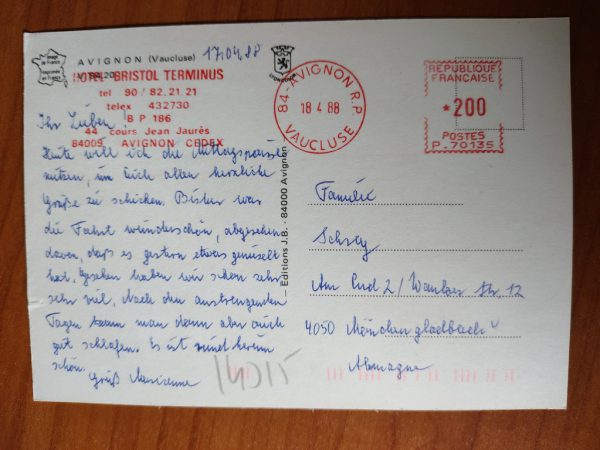 image de France
AVIGNON (Vaucluse) 17.04.88
HOTEL BRISTOL TERMINUS
tel 90/82.21.21
telex 432730
B P 186
44 cours Jean Jaurès
84009 AVIGNON CEDEX
Ihr Lieben!
Heute will ich die Mittagspause
nutzen, um Euch allen herzliche
Grüße zu schicken. Bisher war
die Fahrt wunderschön, abgesehen
davon, daß es gestern etwas genieselt
hat. Gesehen haben wir schon sehr
sehr viel. Nach den anstrengenden
Tagen kann man dann aber auch
gut schlafen. Es ist rundherum
schön.
Gruß Marianne
Editions J.B. - 84000 Avignon
84-AVIGNON R.P.
18 4 88
VAUCLUSE
REPUBLIQUE
FRANÇAISE
*200
POSTES
P.70135
Familie
Am End 2/ Str. 12
4050 Mönchengladbach
Allemagne